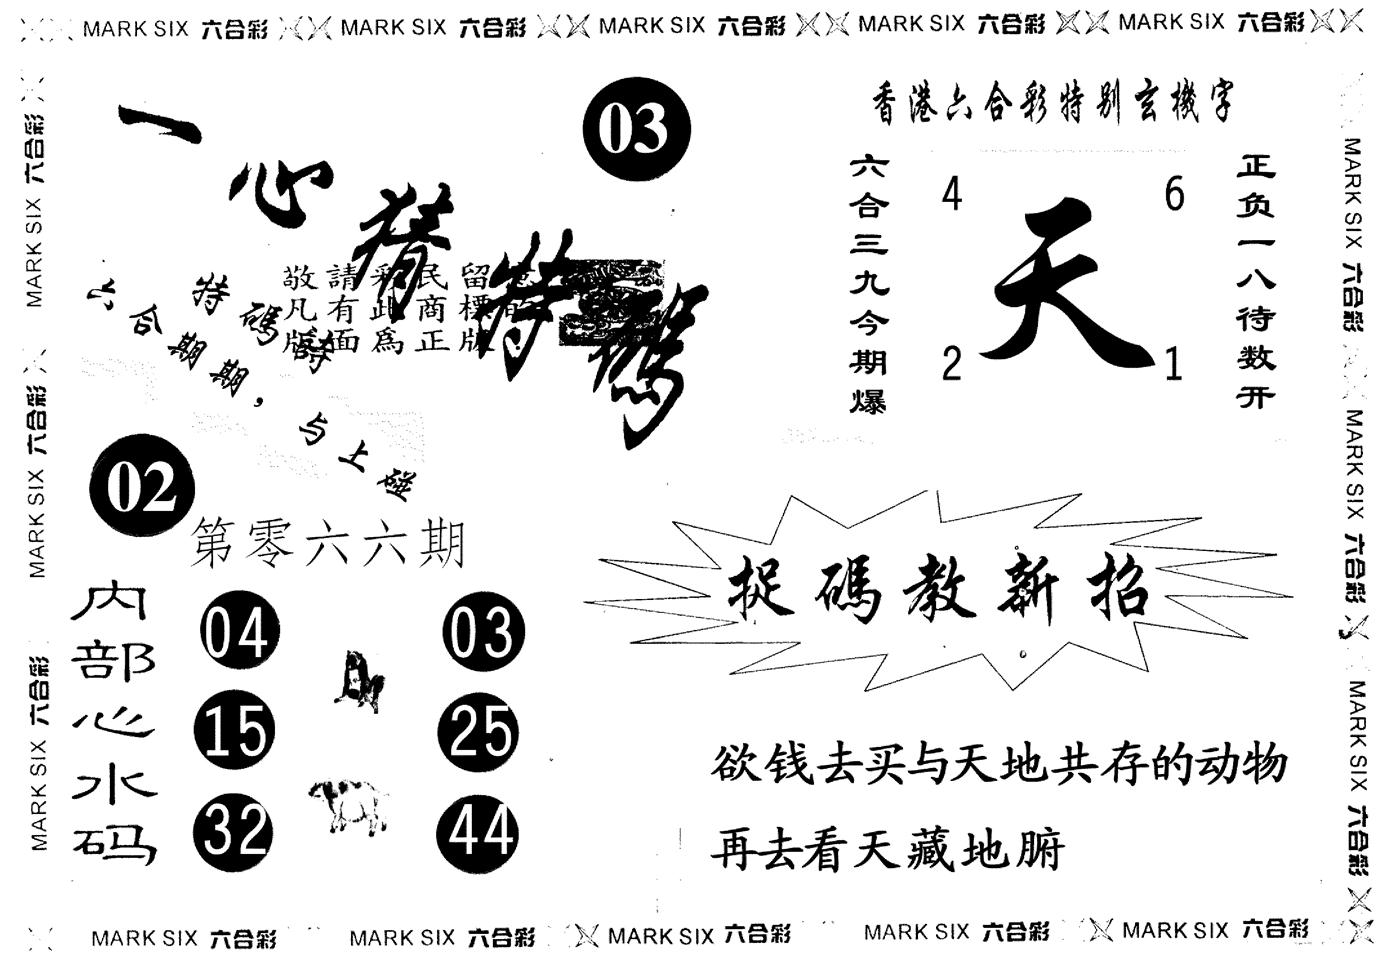 MARK SIX 六合彩 MARK SIX 六合彩 MARK SIX 六合彩 MARK SIX 六合彩 MARK SIX 六合彩
MARK SIX 六合彩 MARK SIX 六合彩 MARK SIX 六合彩
一心猜特碼
03
敬請彩民留意
凡有此商標的
版面為正版
特碼詩
六合期期，与上碰
02
第零六六期
内部心水码
04 03
15 25
32 44
香港六合彩特别玄機字
六合三九今期爆
4 6
天
2 1
正负一八待数开
捉碼教新招
欲钱去买与天地共存的动物
再去看天藏地腑
MARK SIX 六合彩 MARK SIX 六合彩 MARK SIX 六合彩
MARK SIX 六合彩 MARK SIX 六合彩 MARK SIX 六合彩 MARK SIX 六合彩 MARK SIX 六合彩